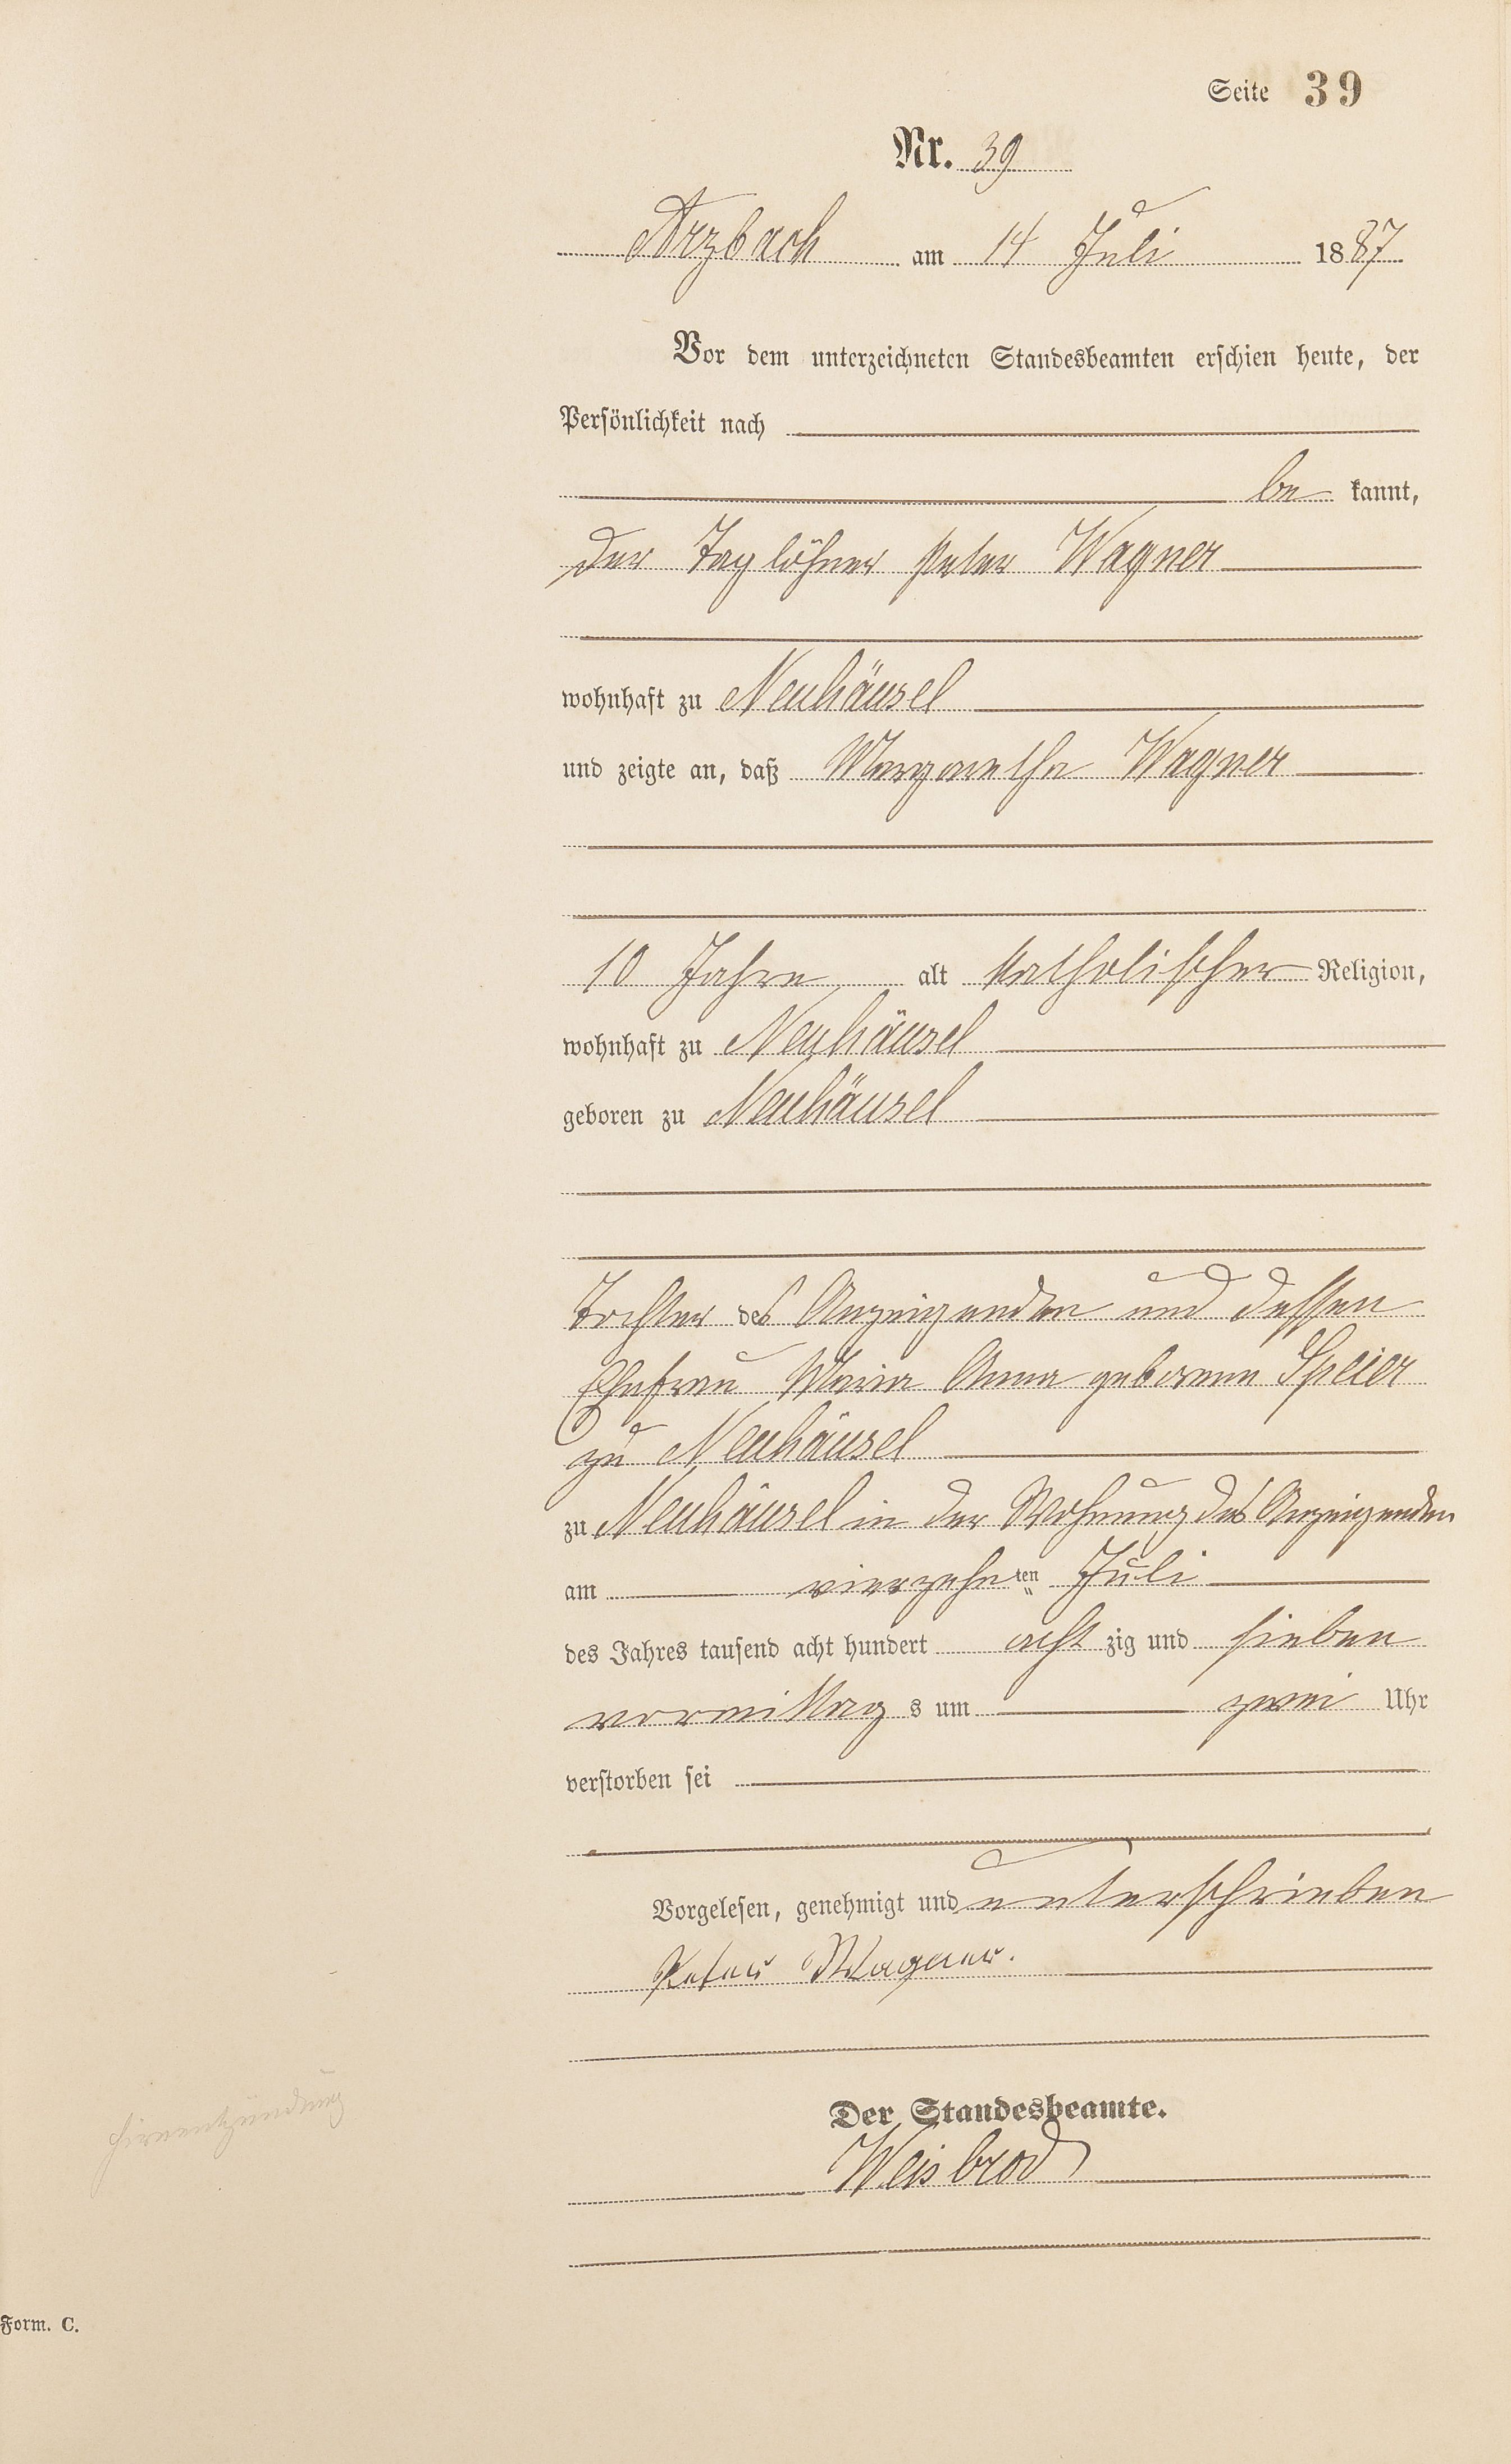 Seite 39
Nr. 39
Arzbach am 14 Juli 1887
Vor dem unterzeichneten Standesbeamten erschien heute, der
Persönlichkeit nach
be kannt,
der Taglöhner Peter Wagner
wohnhaft zu Neuhäusel
und zeigte an, daß Margarethe Wagner
10 Jahre alt katholischer Religion,
wohnhaft zu Neuhäusel
geboren zu Neuhäusel
Tochter des Anzeigenden und dessen
Ehefrau Maria Anna geborene Speier
zu Neuhäusel
zu Neuhäusel in der Wohnung des Anzeigenden
am vierzehnten Juli
des Jahres tausend acht hundert acht zig und sieben
vormittag s um zwei Uhr
verstorben sei
Vorgelesen, genehmigt und unterschrieben
Peter Wagner.
Hirnentzündung
Der Standesbeamte.
Weisbrod
Form. C.